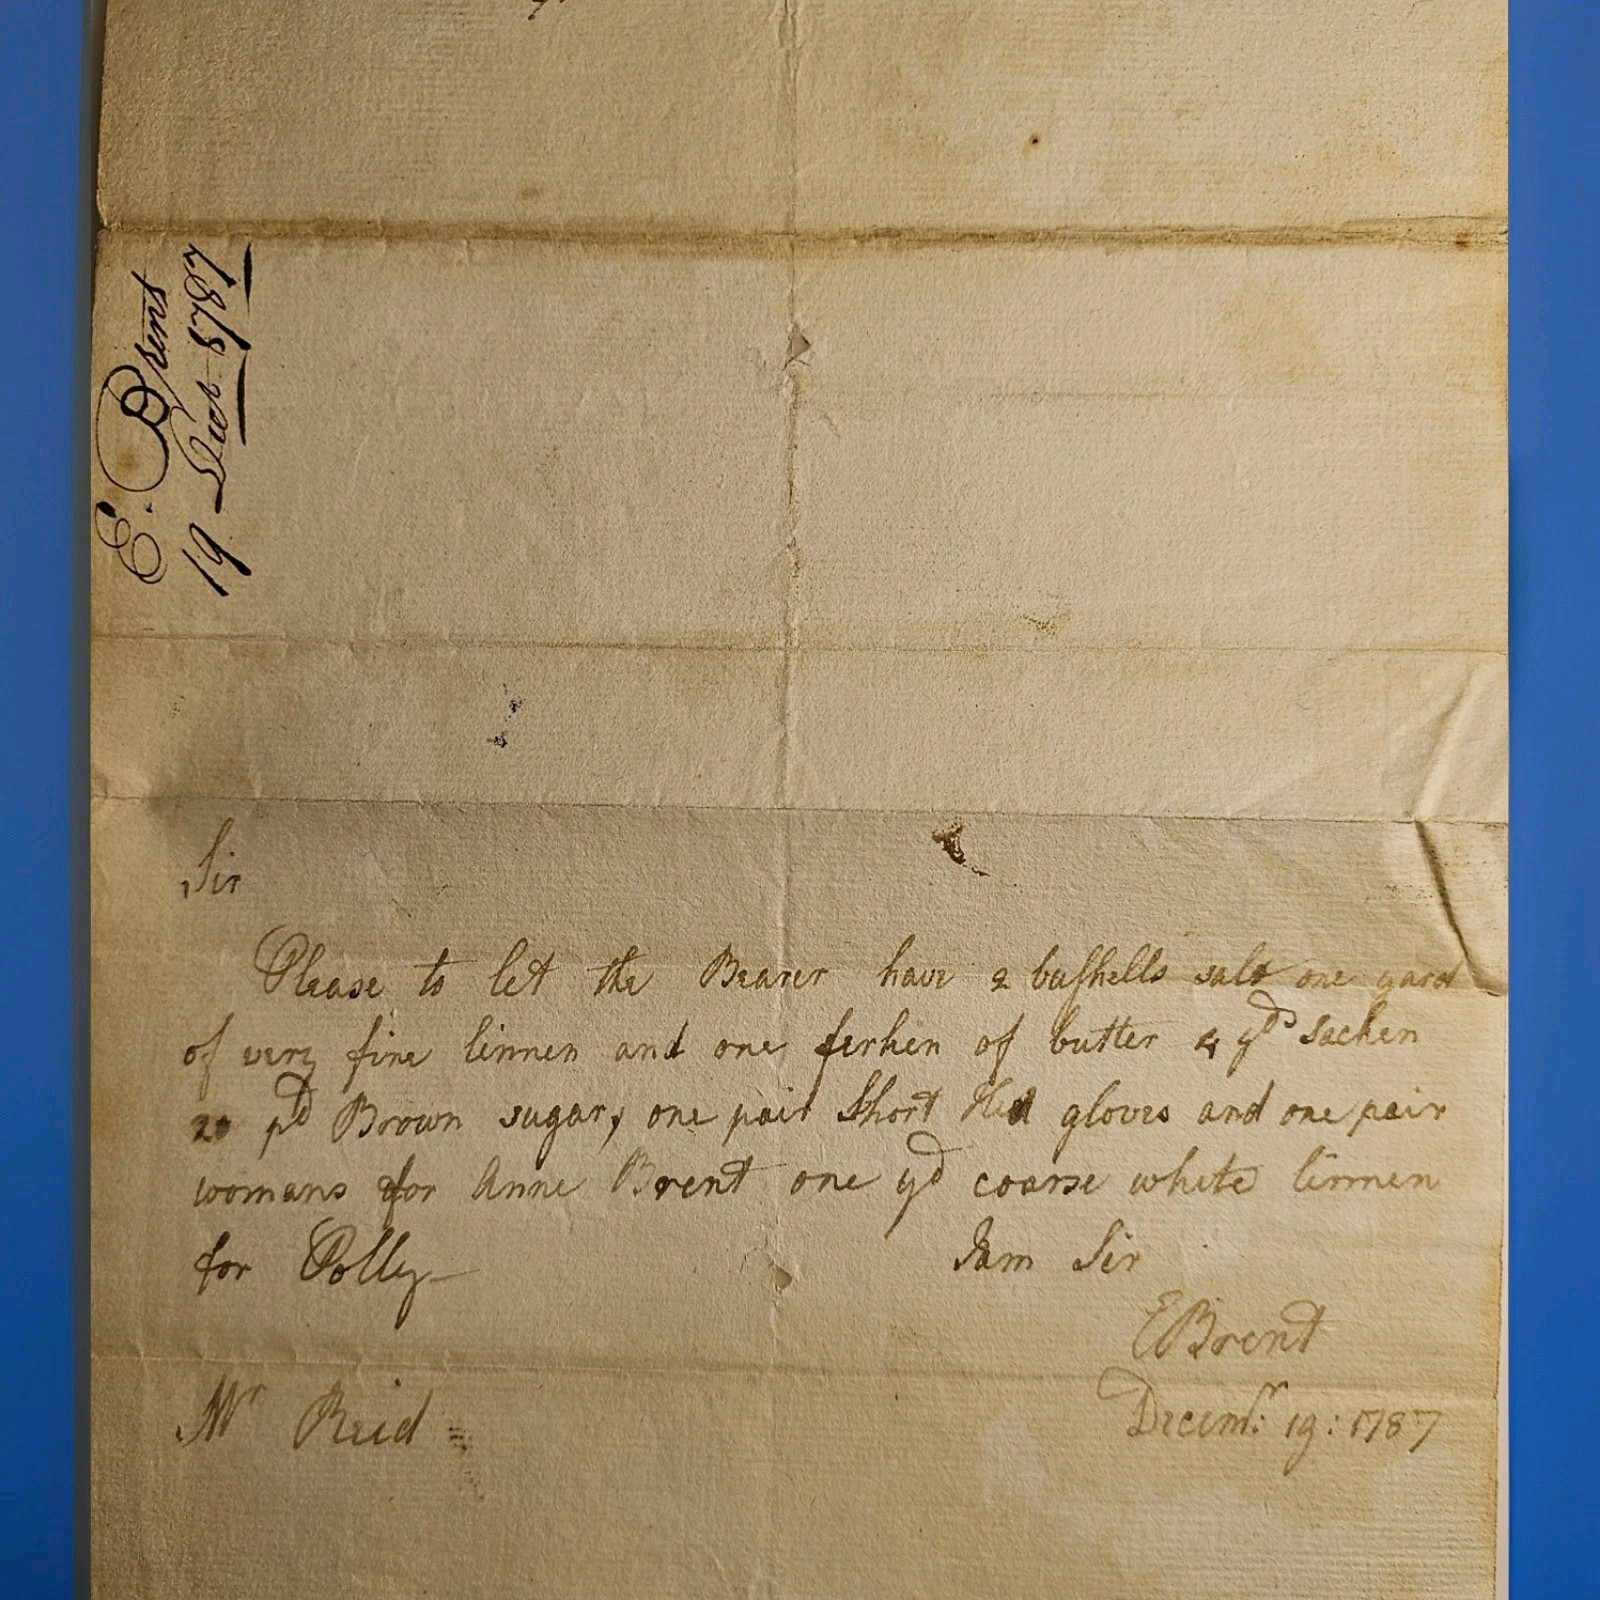 E. Brent
19 Decr 1787
Sir
Please to let the Bearer have 2 bushells salt one yard
of very fine linnen and one ferken of butter 4 yds sacken
20 pd Brown sugar, one pair Short Kid gloves and one pair
womans for Anne Brent one yd coarse white linnen
for Polly—
I am Sir
EBrent
Mr Reid
Decemr: 19: 1787